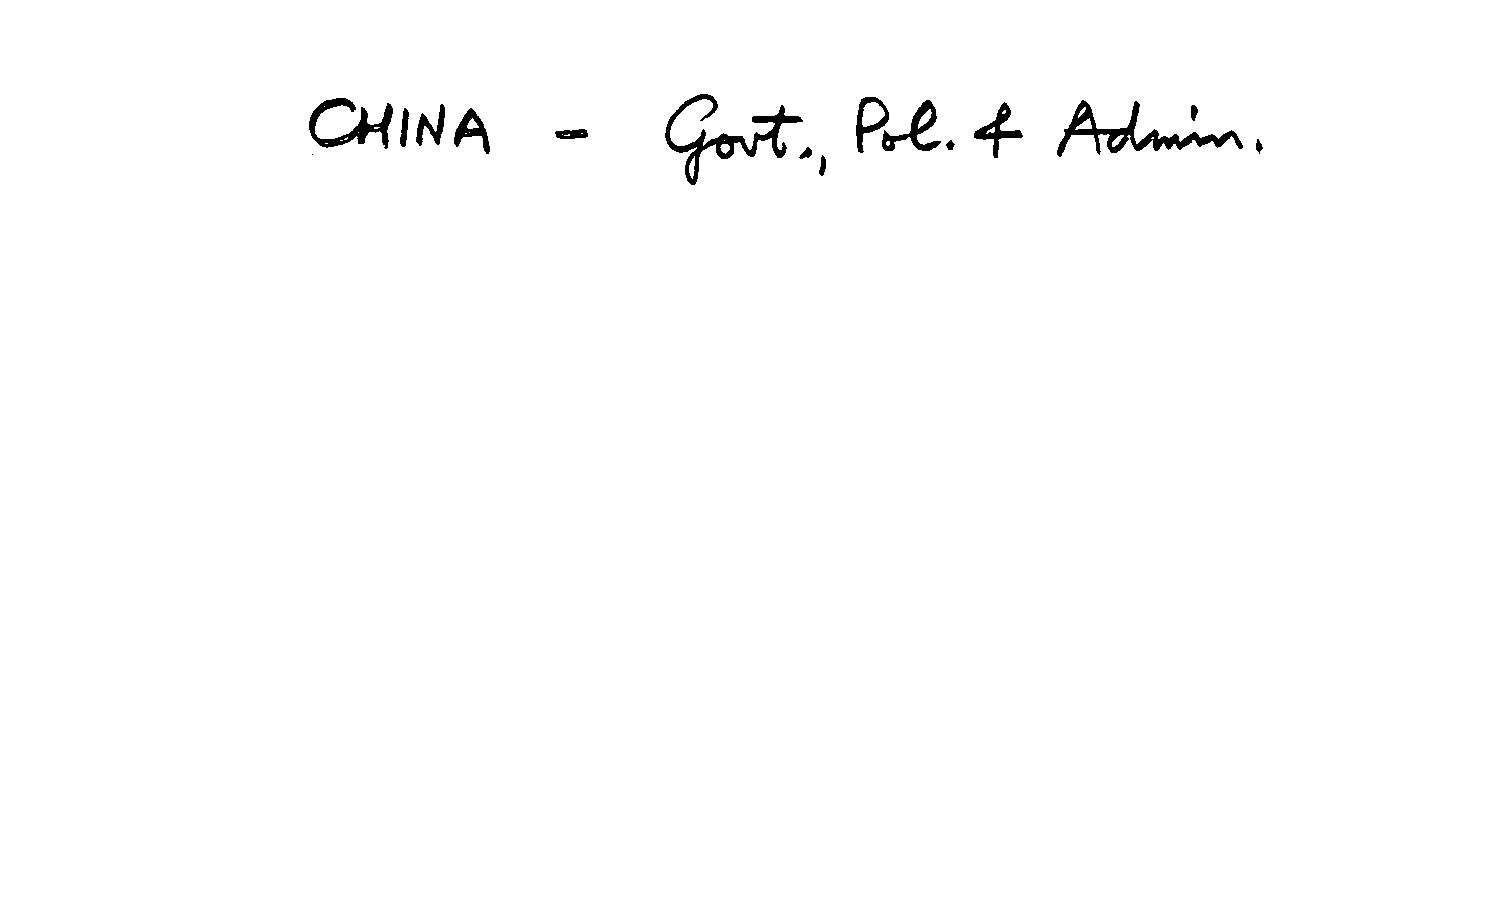 CHINA - Govt., Pol. & Admin.